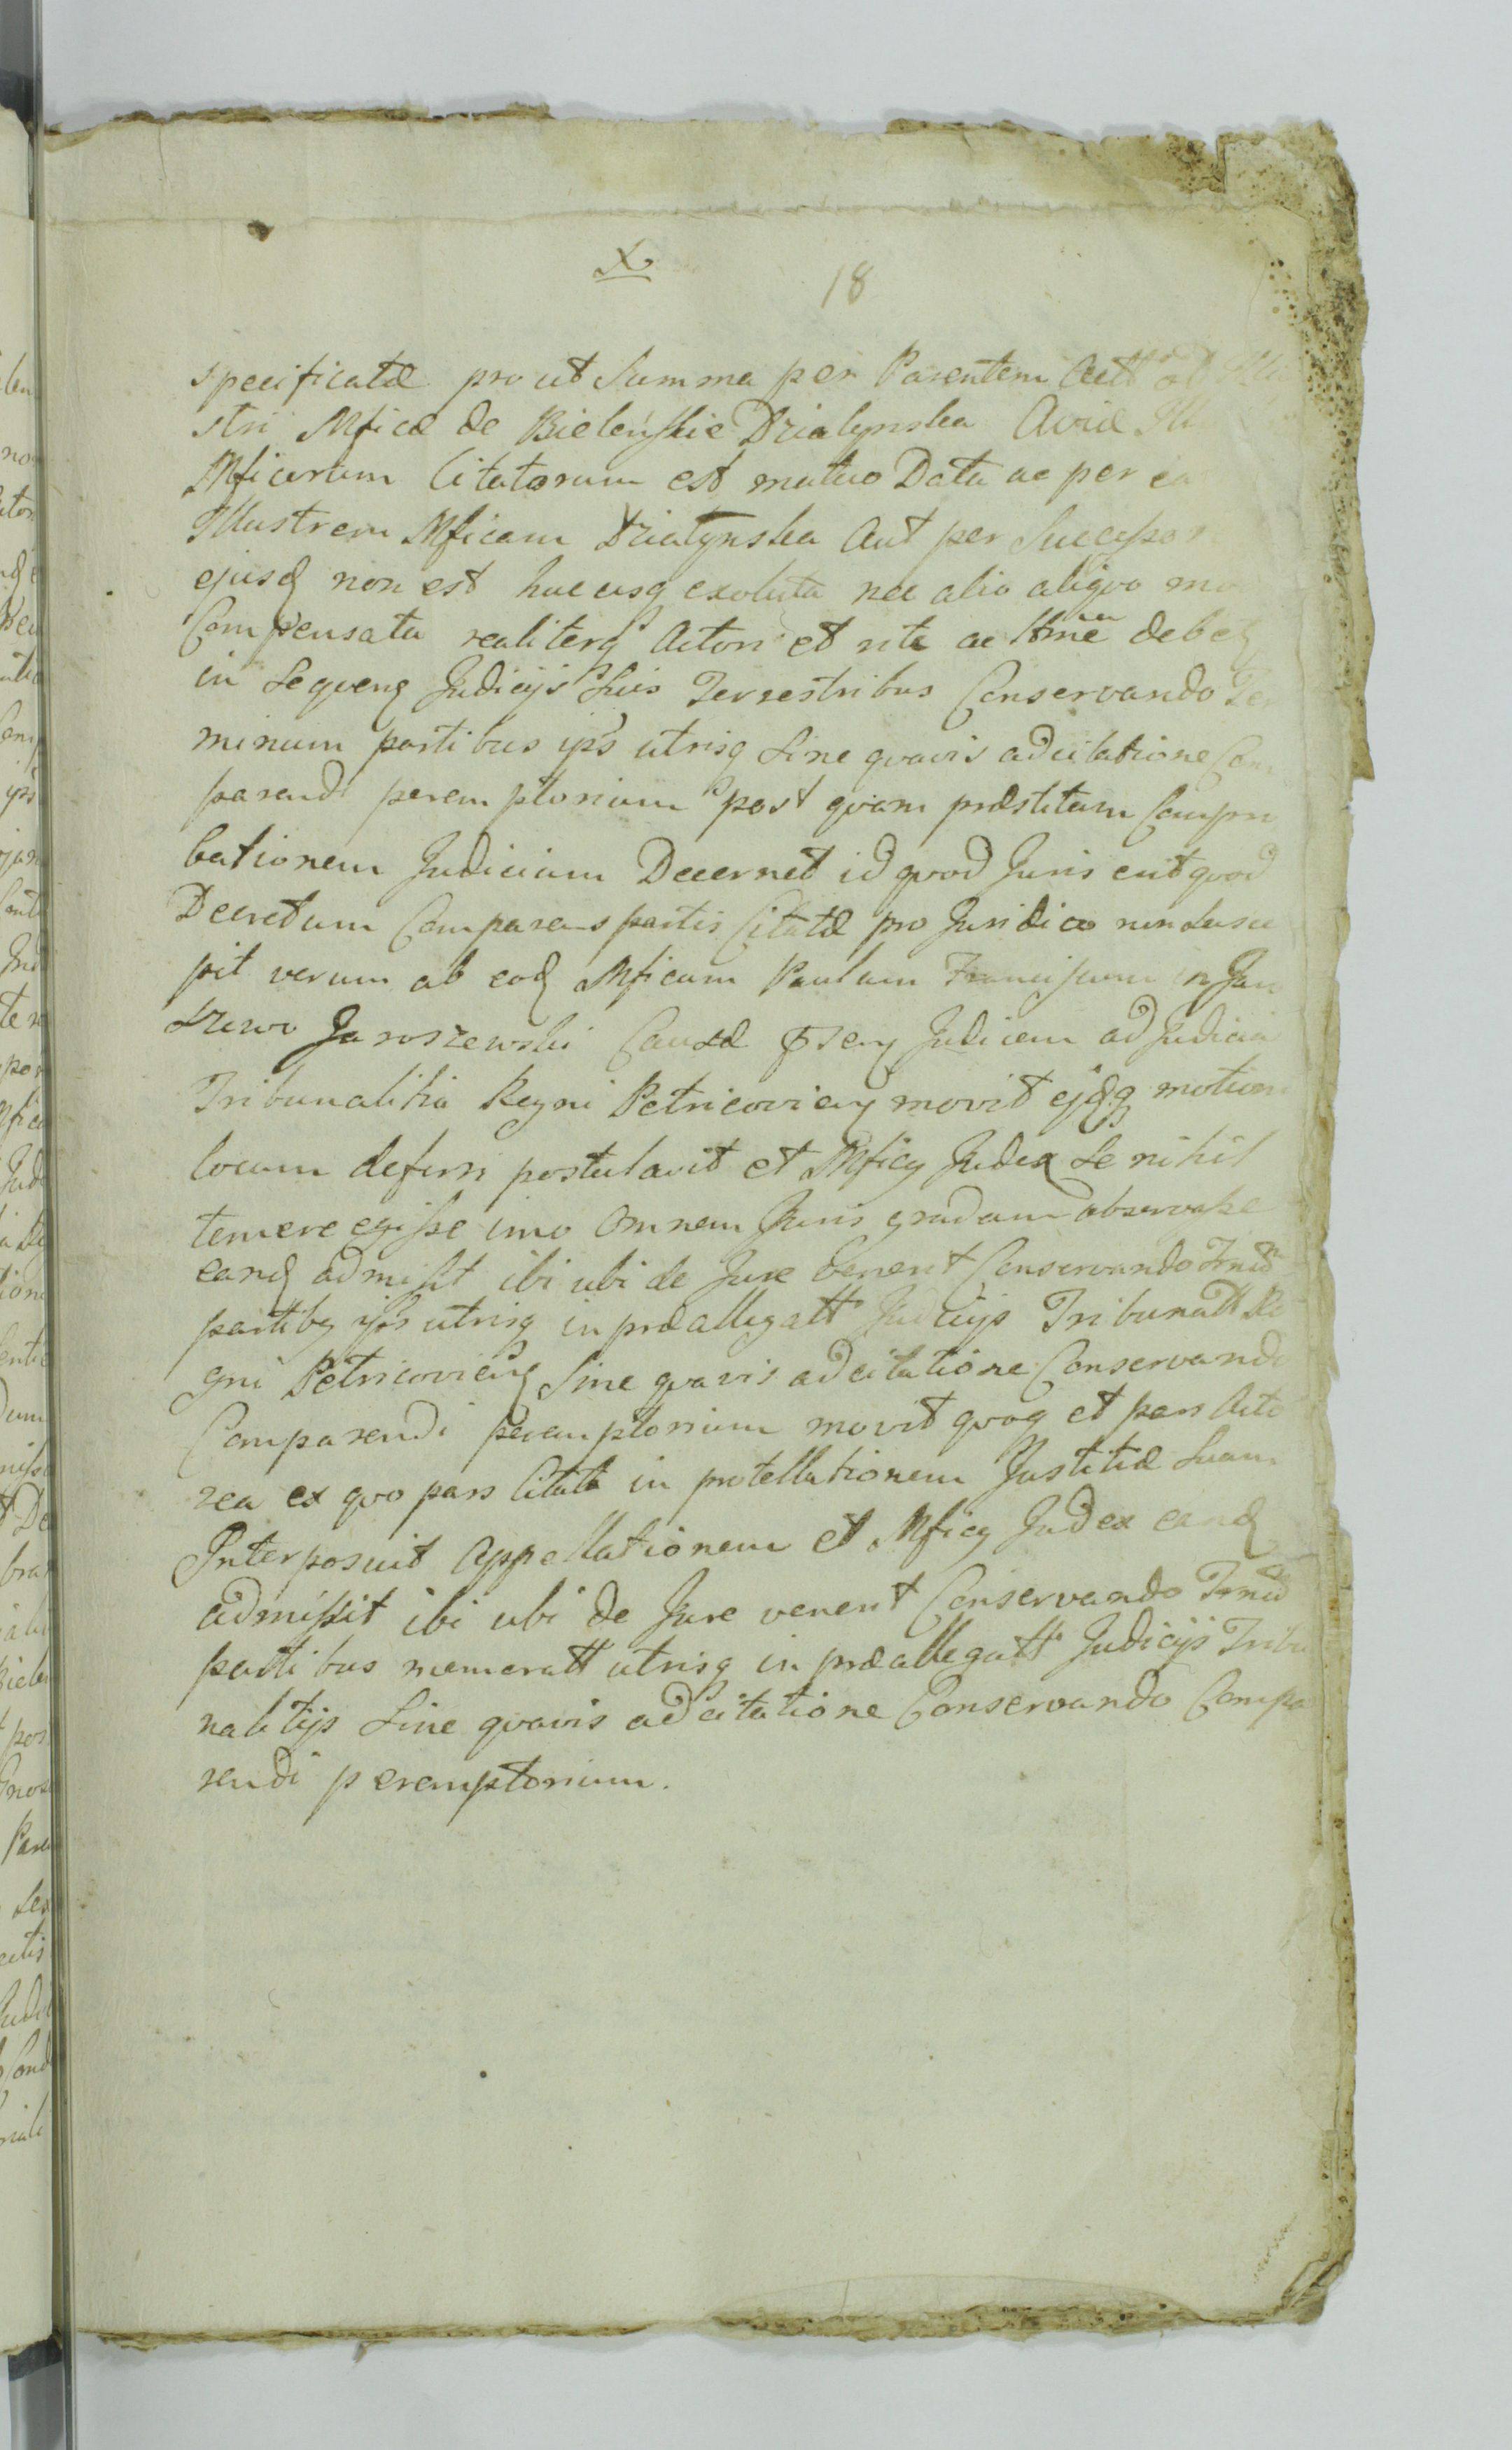 X
18
specificatæ prout Summa per Parentem Actt
stri Mficæ de Bieleńskie Działynska Aviæ
Mficorum Citatorum est mutuo Data ac per
Illustrem Mficam Działynska Aut per Succeſsor
ejusq non est huc usq exoluta nec alio aliqvo mo
Compensata realiterq Actori et rite ac ltme debet
in seqvenq Judicijs Suis Terrestribus Conservando Ter
minum partibus ipś utrisq Sine qvavis adcitatione Com
parendi peremptorium post qvam præstitam Compro
bationem Judicium Decernet id qvod Juris erit qvod
Decretum Comparens partis Citatæ pro Juridico non Susce
pit verum ab eodq Mficum Paulum Franciſcum in Jaro
szewo Jaroszewski Causæ Judicem ad Judicia
Tribunalitia Regni Petricovienq movit ejdq motioni
locum deferri postulavit et Mficq Judex Se nihil
temere egiſse imo Omnem Juris gradum observaſse
eandq admiſit ibi ubi de Jure venerit Conservando Tmū
partibq ipś utrisq in præallegatt Judicijs Tribunatt Re
gni Petricovienq Sine qvavis adcitatione Conservando
Comparendi peremptorium movit qvoq et pars Acto
rea ex qvo pars Citata in protellationem Justitiæ Suam
Interposuit Appellationem et Mficq Judex eandq
admiſsit ibi ubi de Jure venerit Conservando Tmū
partibus memoratt utrisq in præallegatt Judicijs Tribu
nalitijs Sine qvavis adcitatione Conservando Compa
rendi peremptorium.